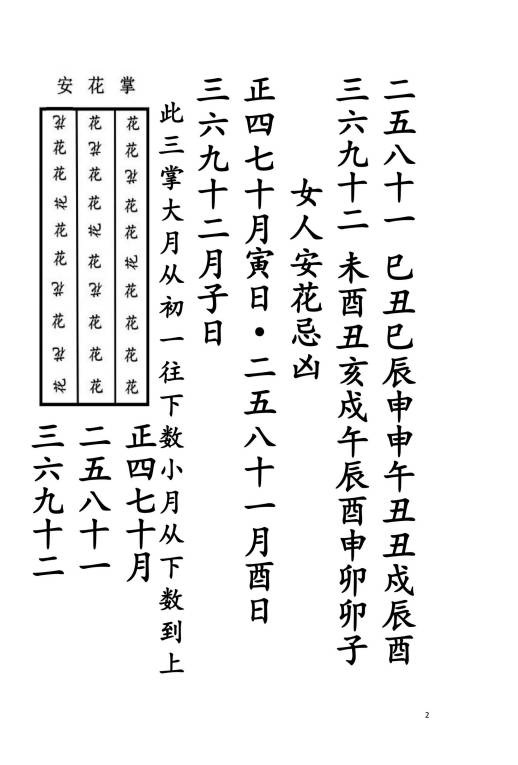 二五八十一 巳丑巳辰申申午丑丑戍辰酉
三六九十二 未酉丑亥戍午辰酉申卯卯子
女人安花忌凶
正四七十月寅日•二五八十一月酉日
三六九十二月子日
此三掌大月从初一往下数小月从下数到上
安花掌
花 花 花
花 花 花
花 花 花
花 花 花
花 花 花
花 花 花
花 花 花
花 花 花
花 花 花
花 花 花
正四七十月
二五八十一
三六九十二
2